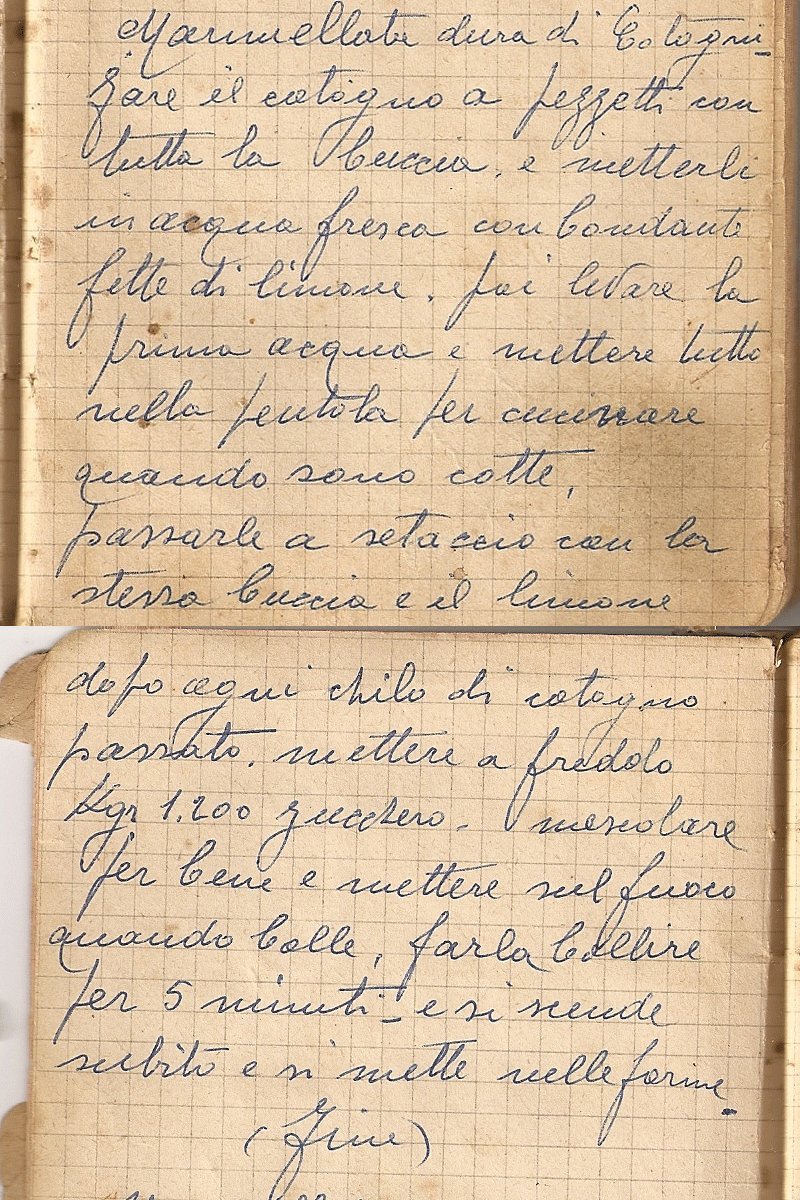 Marmellata dura di Cotogni
Fare il cotogno a pezzetti con
tutta la buccia, e metterli
in acqua fresca con bondante
fette di limone. poi levare la
prima acqua e mettere tutto
nella pentola per cucinare
quando sono cotte,
passarle a setaccio con la
stessa buccia e il limone
dopo ogni chilo di cotogno
passato. mettere a freddo
Kgr 1.200 zucchero - mescolare
per bene e mettere sul fuoco
quando bolle, farla bollire
per 5 minuti - e si scende
subito e si mette nelle forme
(Fine)